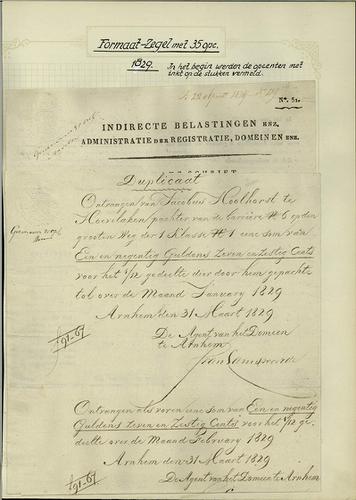 Formaat-Zegel met 35 opc.
1829.
In het begin werden de opcenten met
inkt op de stukken vermeld.
No. 51.
INDIRECTE BELASTINGEN ENZ.
ADMINISTRATIE DER REGISTRATIE, DOMEINEN ENZ.
Duplicaat
Ontvangen van Jacobus Hoolhorst te
Hoevelaken pachter van de barrière No 6 op den
grooten weg der 1 Klasse No 1 eene som van
Een en negentig Guldens Zeven en Zestig Cents
voor het 1/12 gedeelte dier door hem gepachte
tol over de Maand January 1829
Arnhem den 31 Maart 1829
De Agent van het Domein
te Arnhem
f 91-67
Ontvangen als voren eene som van Een en negentig
Guldens Zeven en Zestig Cents voor het 1/12 ge-
deelte over de Maand February 1829
Arnhem den 31 Maart 1829
f 91-67
De Agent van het Domein te Arnhem